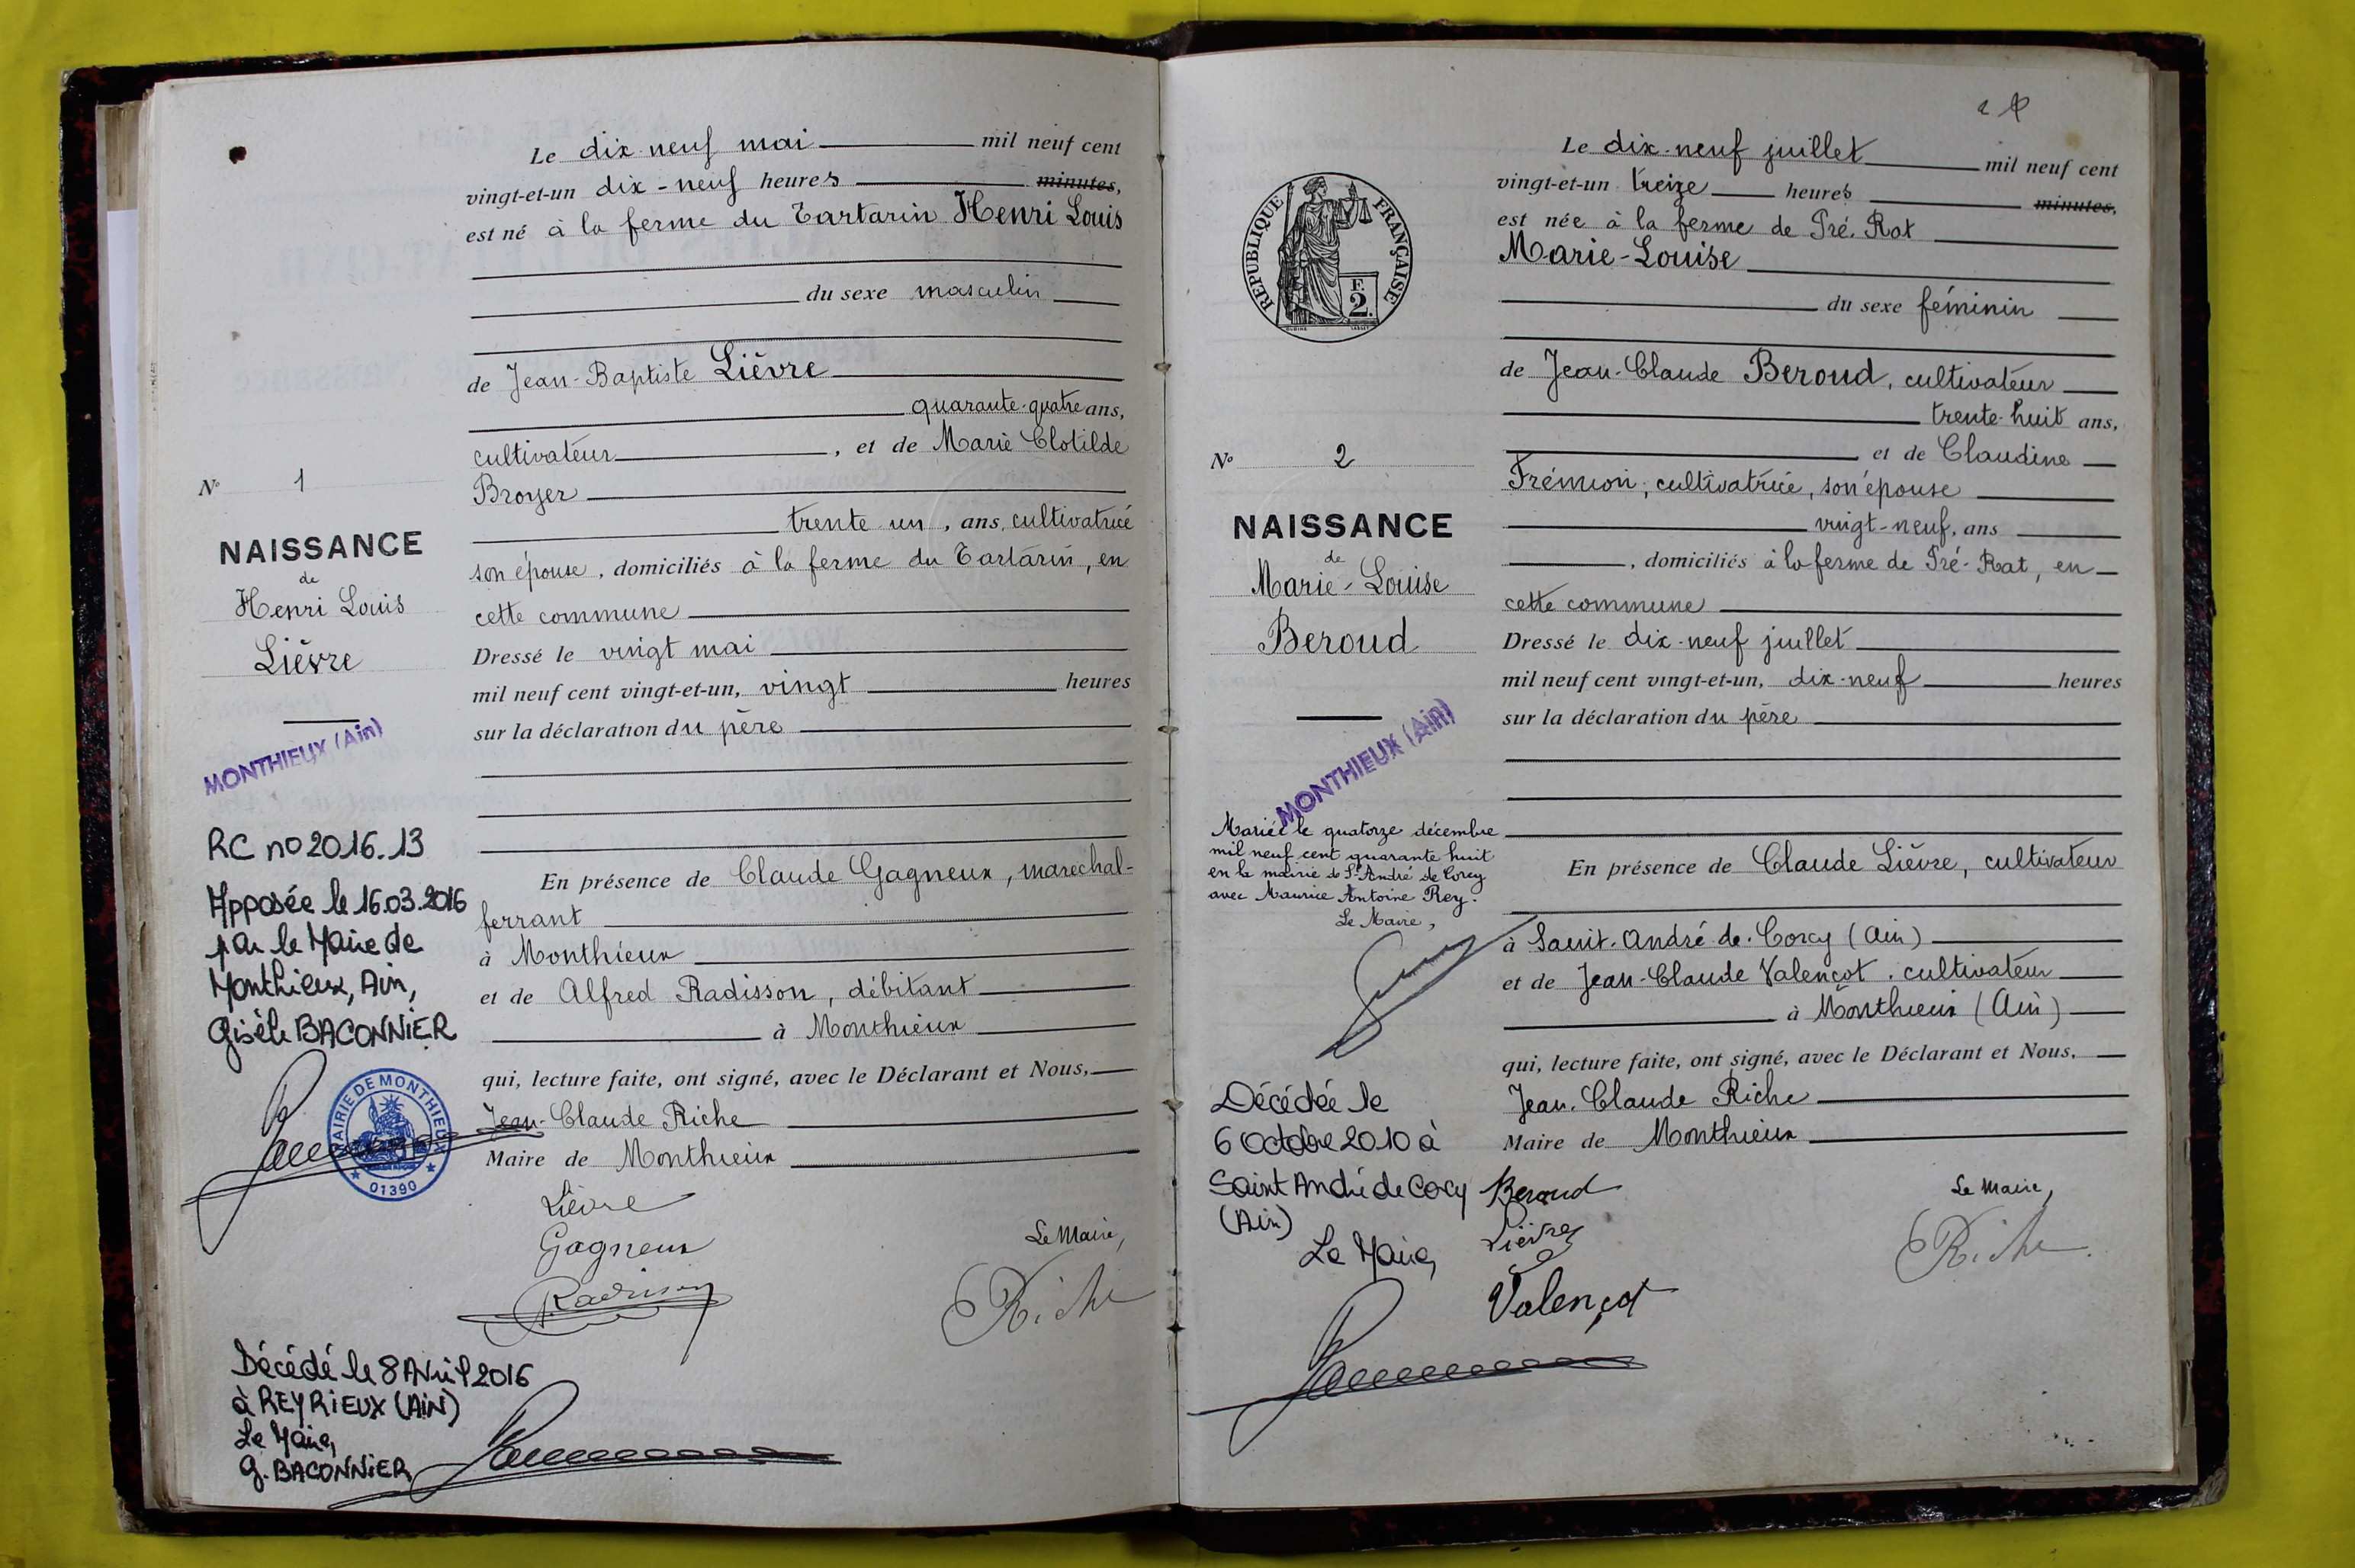 Le dix-neuf mai mil neuf cent
vingt-et-un dix-neuf heures minutes,
est né à la ferme du Tartarin Henri Louis
du sexe masculin
de Jean-Baptiste Lièvre
quarante-quatre ans,
cultivateur, et de Marie Clotilde
Broyer
trente un, ans, cultivatrice
son épouse, domiciliés à la ferme du Tartarin, en
cette commune
Dressé le vingt mai
mil neuf cent vingt-et-un, vingt heures
sur la déclaration du père
En présence de Claude Gagneux, maréchal-
ferrant
à Monthieux
et de Alfred Radisson, débitant
à Monthieux
qui, lecture faite, ont signé, avec le Déclarant et Nous,
Jean-Claude Riche
Maire de Monthieux
Lièvre
Gagneux
Radisson
Le Maire,
Riche
N° 1
NAISSANCE
de
Henri Louis
Lièvre
MONTHIEUX (Ain)
RC n° 2016.13
Apposée le 16.03.2016
par le Maire de
Monthieux, Ain,
Gisèle BACONNIER
MAIRIE DE MONTHIEUX
01390
Décédé le 8 Avril 2016
à REYRIEUX (AIN)
Le Maire,
G. BACONNIER
Le dix-neuf juillet mil neuf cent
vingt-et-un treize heures minutes,
est née à la ferme de Pré-Rat
Marie-Louise
du sexe féminin
de Jean-Claude Beroud, cultivateur
trente-huit ans,
et de Claudine
Frémion, cultivatrice, son épouse
vingt-neuf, ans
, domiciliés à la ferme de Pré-Rat, en
cette commune
Dressé le dix-neuf juillet
mil neuf cent vingt-et-un, dix-neuf heures
sur la déclaration du père
En présence de Claude Lièvre, cultivateur
à Saint-André-de-Corcy (Ain)
et de Jean-Claude Valençot, cultivateur
à Monthieux (Ain)
qui, lecture faite, ont signé, avec le Déclarant et Nous,
Jean-Claude Riche
Maire de Monthieux
Beroud
Lièvre
Valençot
Le Maire,
Riche
RÉPUBLIQUE FRANÇAISE
F.
2.
N° 2
NAISSANCE
de
Marie-Louise
Beroud
MONTHIEUX (Ain)
Mariée le quatorze décembre
mil neuf cent quarante huit
en la mairie de St André de Corcy
avec Maurice Antoine Rey.
Le Maire,
Décédée le
6 Octobre 2010 à
Saint André de Corcy
(Ain)
Le Maire,